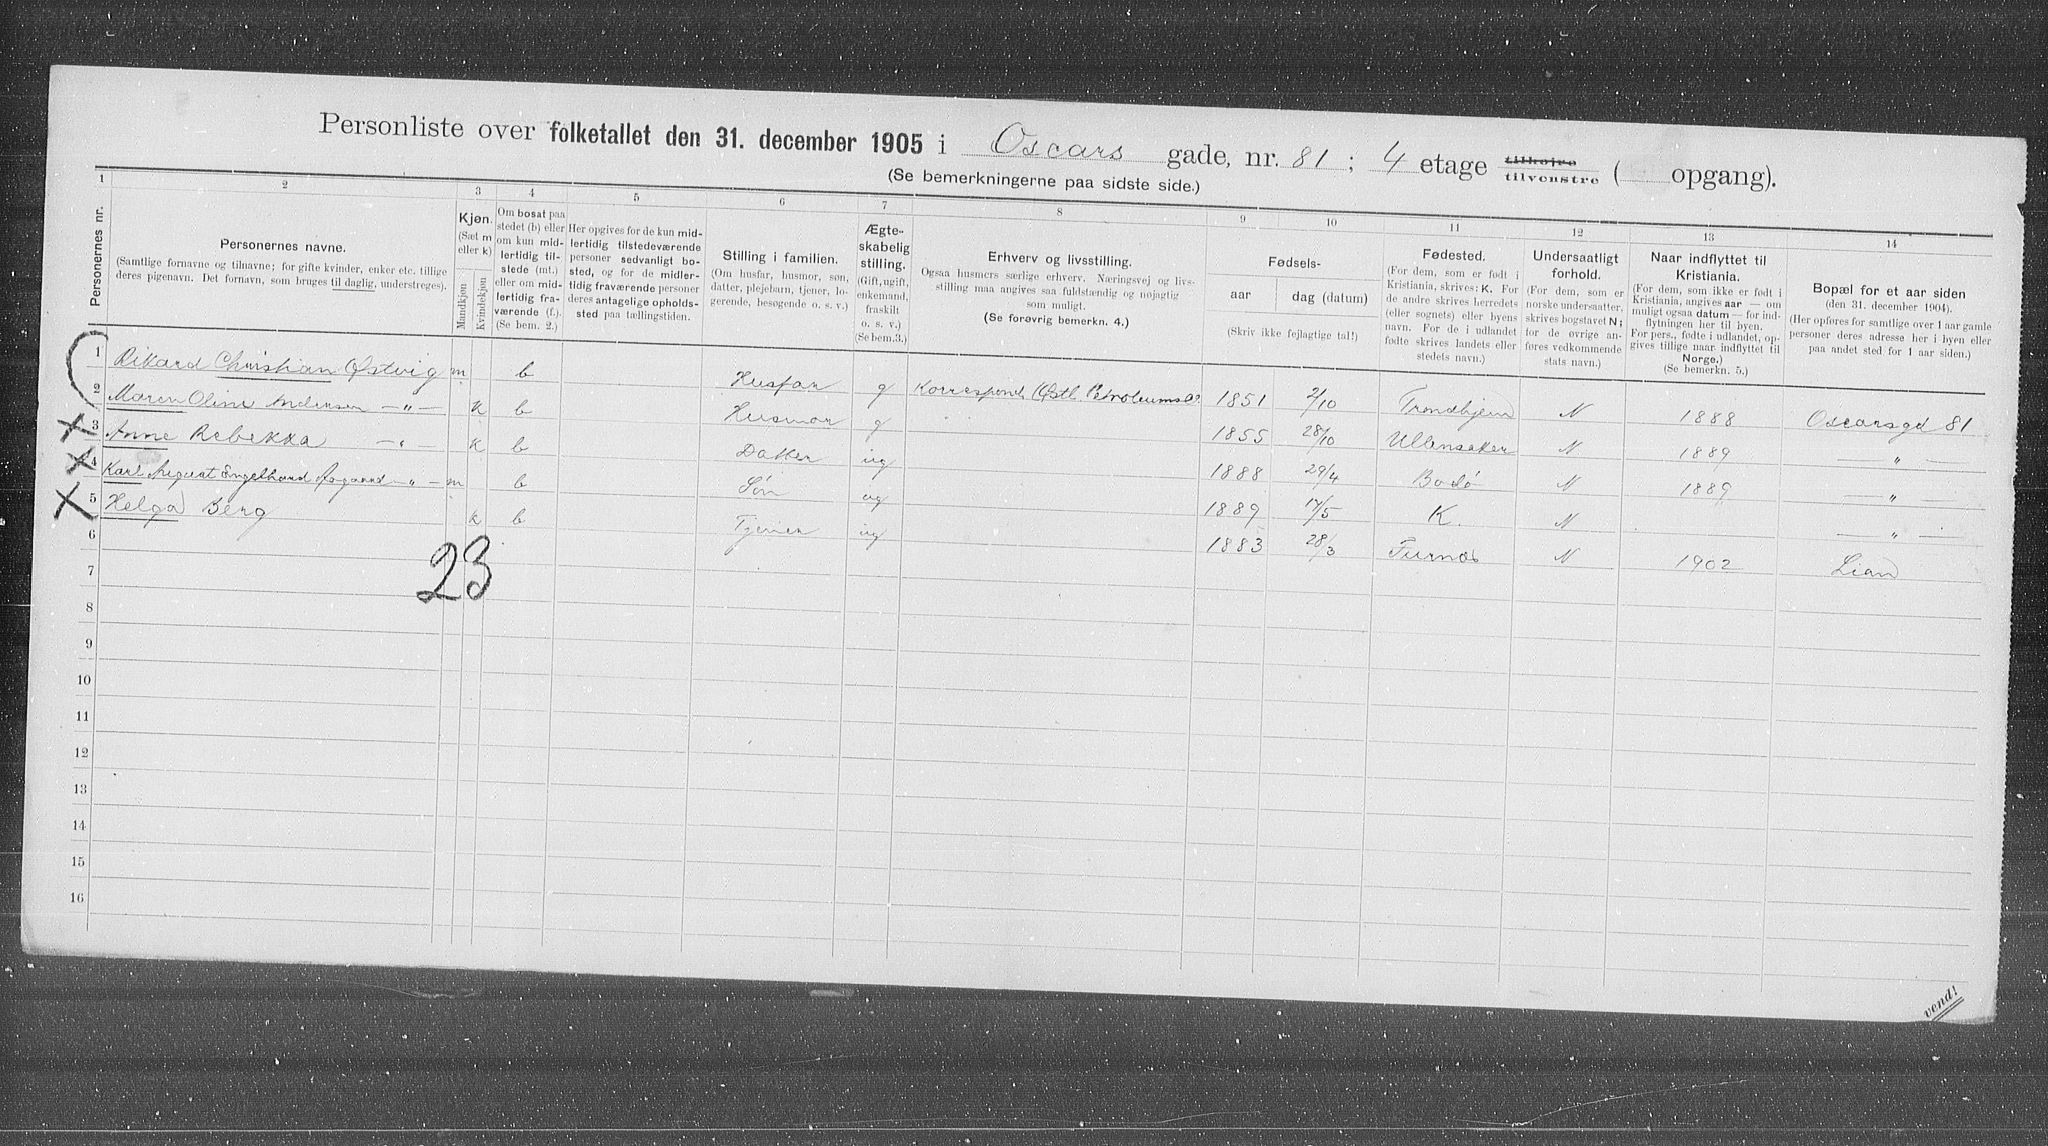 Personliste over folketallet den 31. december 1905 i Oscars gade, nr. 81; 4 etage tilhøjre tilvenstre ( opgang).
(Se bemerkningerne paa sidste side.)
1 2 3 4 5 6 7 8 9 10 11 12 13 14
Personernes nr.
Personernes navne.
(Samtlige fornavne og tilnavne; for gifte kvinder, enker etc. tillige
deres pigenavn. Det fornavn, som bruges til daglig, understreges).
Kjøn.
(Sæt m
eller k)
Mandkjøn
Kvindekjøn
Om bosat paa
stedet (b) eller
om kun mid-
lertidig til-
stede (mt.)
eller om mid-
lertidig fra-
værende (f.).
(Se bem. 2.)
Her opgives for de kun mid-
lertidig tilstedeværende
personer sedvanligt bo-
sted, og for de midler-
tidig fraværende personer
deres antagelige opholds-
sted paa tællingstiden.
Stilling i familien.
(Om husfar, husmor, søn,
datter, plejebarn, tjener, lo-
gerende, besøgende o. s. v.)
Ægte-
skabelig
stilling.
(Gift, ugift,
enkemand,
fraskilt
o. s. v.)
(Se bem.3.)
Erhverv og livsstilling.
Ogsaa husmors særlige erhverv. Næringsvej og livs-
stilling maa angives saa fuldstændig og nøjagtig
som muligt.
(Se forøvrig bemerkn. 4.)
Fødsels-
aar
dag (datum)
(Skriv ikke fejlagtige tal!)
Fødested.
(For dem, som er født i
Kristiania, skrives: K. For
de andre skrives herredets
(eller sognets) eller byens
navn. For de i udlandet
fødte skrives landets eller
stedets navn.)
Undersaatligt
forhold.
(For dem, som er
norske undersaatter,
skrives bogstavet N;
for de øvrige an-
føres vedkommende
stats navn.)
Naar indflyttet til
Kristiania.
(For dem, som ikke er født i
Kristiania, angives aar — om
muligt ogsaa datum — for ind-
flytningen her til byen.
For pers., fødte i udlandet, op-
gives tillige naar indflyttet til
Norge.)
(Se bemerkn. 5.)
Bopæl for et aar siden
(den 31. december 1904).
(Her opføres for samtlige over 1 aar gamle
personer deres adresse her i byen eller
paa andet sted for 1 aar siden.)
1 Rikard Christian Østvig m b Husfar g Korrespond. Østl. Petroleums 1851 2/10 Trondhjem N 1888 Oscarsgd 81
2 Maren Oline Andersen —"— k b Husmor g 1855 28/10 Ullensaker N 1889 —"—
3 Anne Rebekka —"— k b Datter ug 1888 29/4 Bodø N 1889 —"—
4 Karl August Engelhard —"— m b Søn ug 1889 17/5 K. N —"—
5 Helga Berg k b Tjener ug 1883 28/3 Furnes N 1902 Lian
6
23
7
8
9
10
11
12
13
14
15
16
vend!